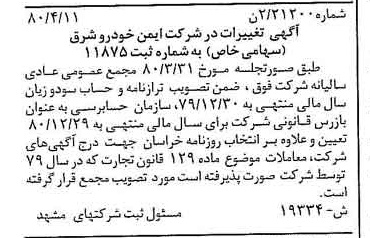 شماره ۲/۲۱۳۰۰ن ۸۰/۴/۱۱
آگهی تغییرات در شرکت ایمن خودرو شرق
(سهامی خاص) به شماره ثبت ۱۱۸۷۵
طبق صورتجلسه مورخ ۸۰/۳/۳۱ مجمع عمومی عادی
سالیانه شرکت فوق، ضمن تصویب ترازنامه و حساب سود و زیان
سال مالی منتهی به ۷۹/۱۲/۳۰، سازمان حسابرسی به عنوان
بازرس قانونی شرکت برای سال مالی منتهی به ۸۰/۱۲/۲۹
تعیین و علاوه بر انتخاب روزنامه خراسان جهت درج آگهی‌های
شرکت، معاملات موضوع ماده ۱۲۹ قانون تجارت که در سال ۷۹
توسط شرکت صورت پذیرفته است مورد تصویب مجمع قرار گرفته
است.
ش-۱۹۳۳۴ مسئول ثبت شرکتهای مشهد